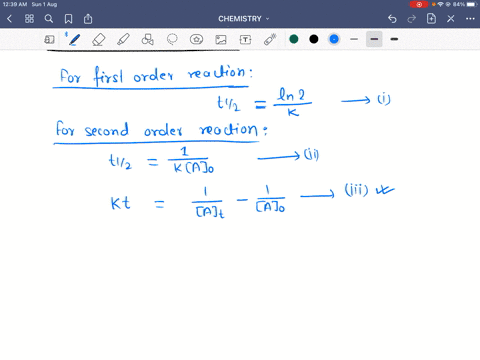 12:39 AM Sun 1 Aug
84%
CHEMISTRY
For first order reaction:
t1/2 = ln 2 / K ⟶ (i)
For second order reaction:
t1/2 = 1 / K[A]0 ⟶ (ii)
Kt = 1 / [A]t − 1 / [A]0 ⟶ (iii)